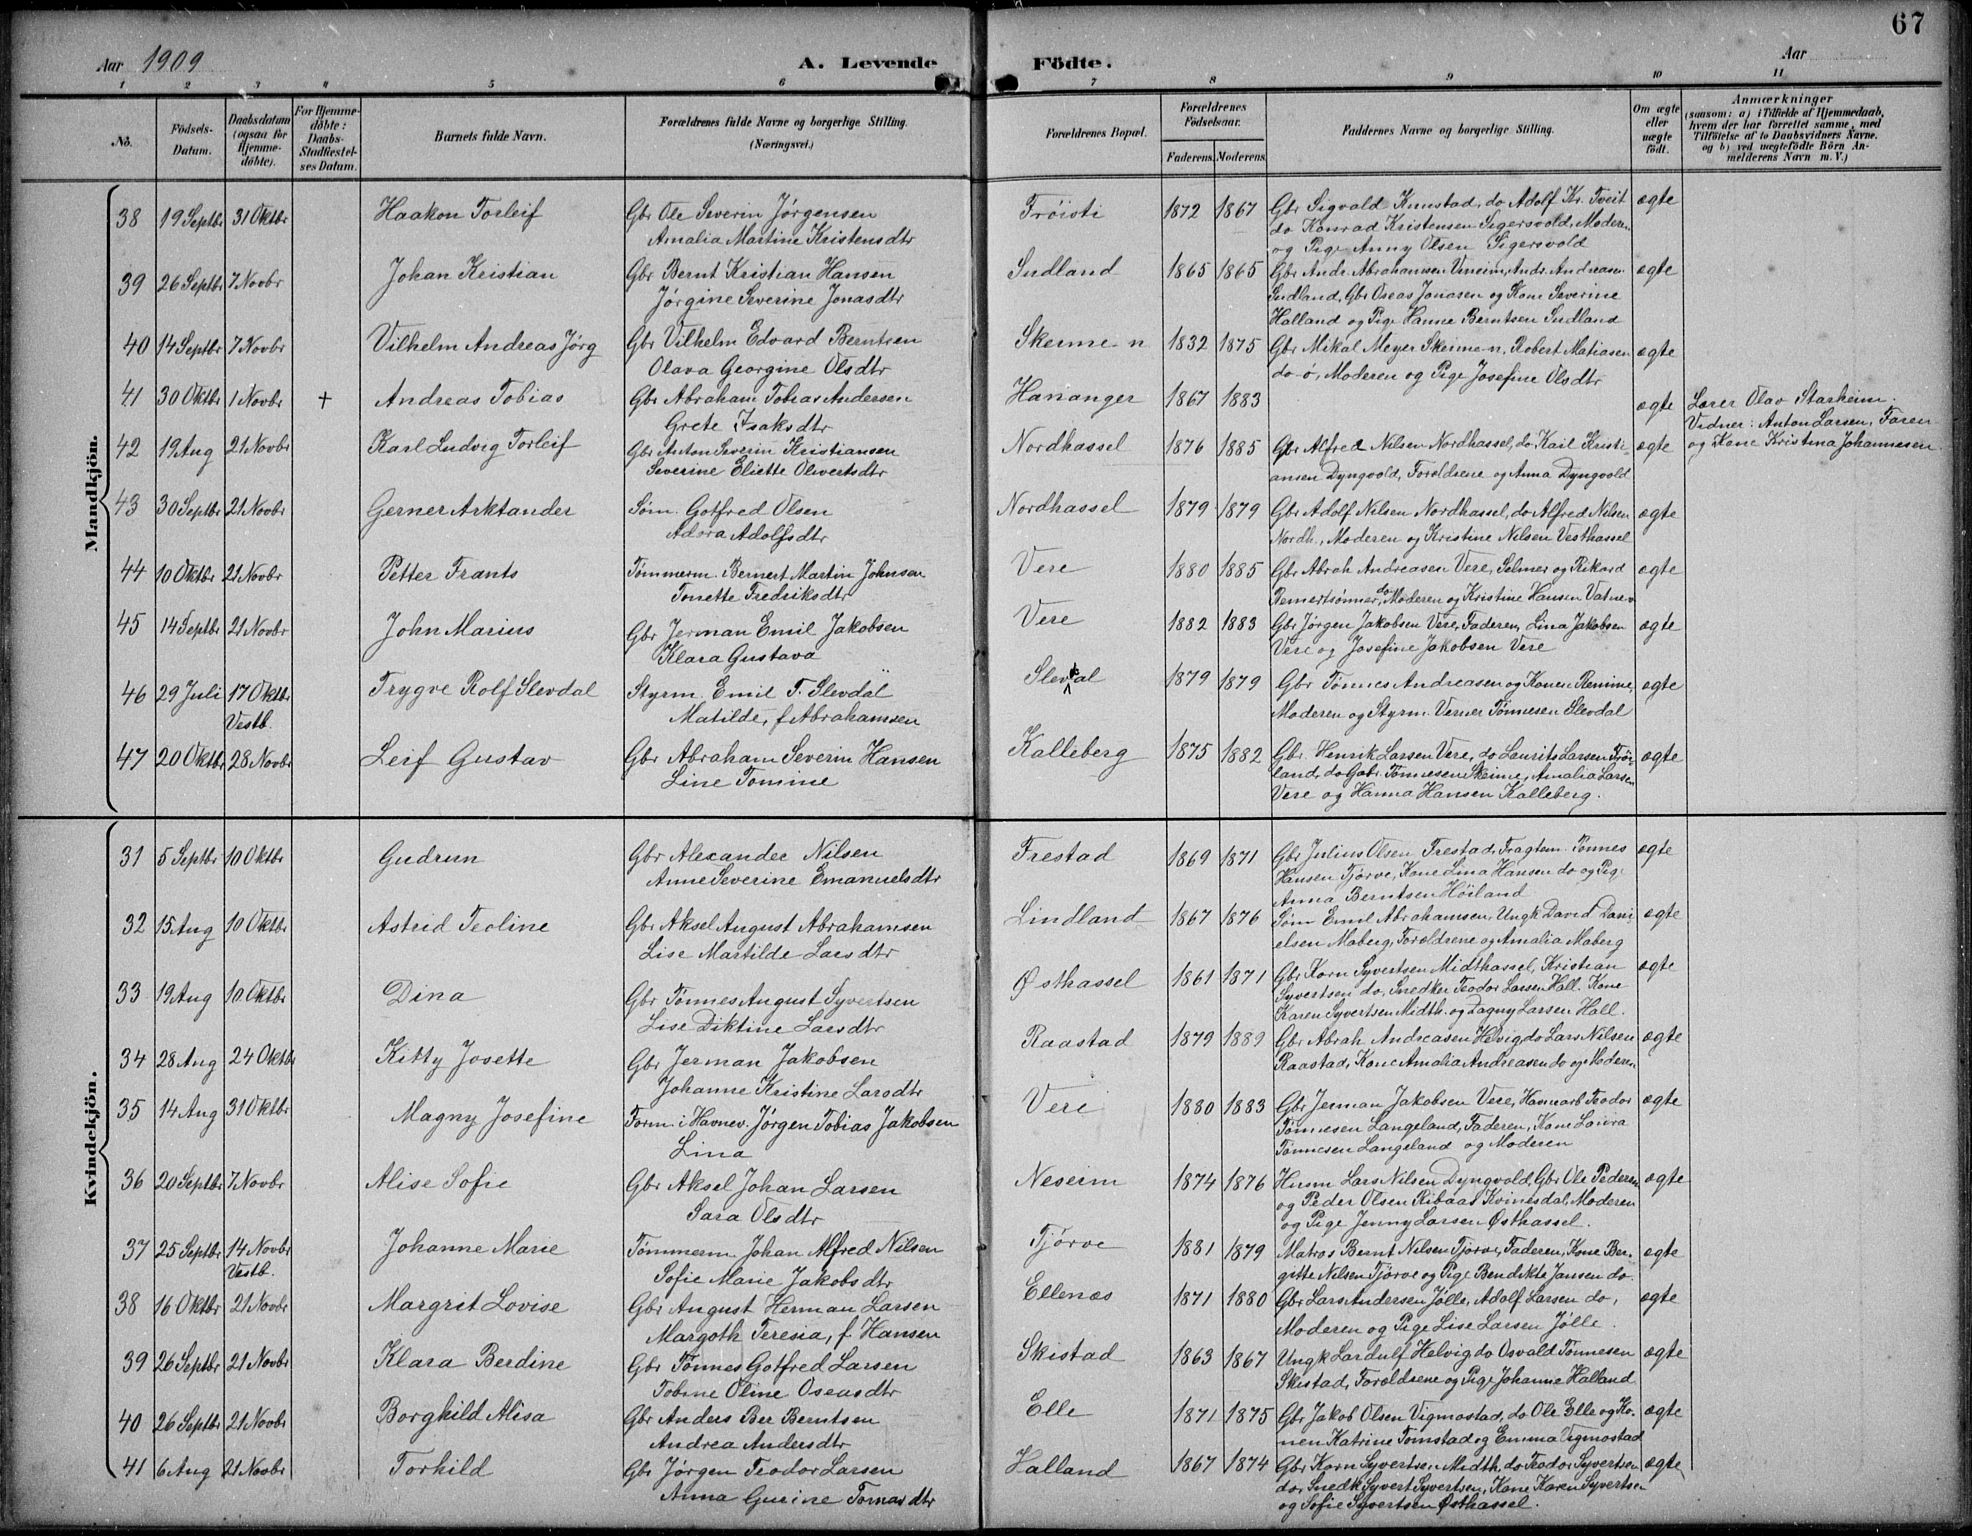 67
Aar 1909 A. Levende Födte. Aar
1 2 3 4 5 6 7 8 9 10 11
No.
Födsels-Datum.
Daabsdatum (ogsaa for Hjemme-döbte).
For Hjemme-döbte: Daabs-Stadfæstel-ses Datum.
Barnets fulde Navn.
Forældrenes fulde Navne og borgerlige Stilling. (Næringsvei.)
Forældrenes Bopæl.
Forældrenes Födselsaar.
Faderens. Moderens.
Faddernes Navne og borgerlige Stilling.
Om ægte eller uægte födt.
Anmærkninger
(saasom: a) i Tilfælde af Hjemmedaab,
hvem der har forrettet samme, med
Tilföielse af to Daabsvidners Navne,
og b) ved uægtefödte Börn An-
melderens Navn m. V.)
Mandkjön.
38 19 Septbr 31 Oktbr Haakon Torleif Gbr Ole Severin Jørgensen Frøisti 1872 1867 Gbr Sigvald Knustad, do Adolf Kr. Tveit ægte
Amalia Martine Kristensdtr do Konrad Kristensen Sigersvold, Moderen
og Pige Anny Olsen Sigersvold
39 26 Septbr 7 Novbr Johan Kristian Gbr Bernt Kristian Hansen Sudland 1865 1865 Gbr Andr. Abrahamsen Uneim, Andr. Andreasen ægte
Jørgine Severine Jonasdtr Sudland, Gbr Oseas Jonasen og Kone Severine
Halland og Pige Hanne Berntsen Sudland
40 14 Septbr 7 Novbr Vilhelm Andreas Jørg Gbr Vilhelm Edvard Berntsen Skeime-n 1832 1875 Gbr Mikal Meyer Skeime-n, Robert Matiasen ægte
Olava Georgine Olsdtr do-ø, Moderen og Pige Josefine Olsdtr
41 30 Oktbr 1 Novbr + Andreas Tobias Gbr Abraham Tobias Andersen Hananger 1867 1883 ægte Lærer Olav Starheim.
Grete Isaksdtr Vidner: Anton Larsen, Faren
og Kone Kristina Johannesen
42 19 Aug 21 Novbr Karl Ludvig Torleif Gbr Anton Severin Kristiansen Nordhassel 1876 1885 Gbr Alfred Nilsen Nordhassel, do Karl Kristi- ægte
Severine Eliette Olivertsdtr ansen Dyngvold, Forældrene og Anna Dyngvold
43 30 Septbr 21 Novbr Gerner Arktander Søm. Gotfred Olsen Nordhassel 1879 1879 Gbr Adolf Nilsen Nordhassel, do Alfred Nilsen ægte
Adora Adolfsdtr Nordh., Moderen og Kristine Nilsen Vesthassel
44 10 Oktbr 21 Novbr Petter Frants Tømmerm. Bernert Martin Johnsen Vere 1880 1885 Gbr Abrah Andreasen Vere, Selmer og Rikard ægte
Tomette Fredriksdtr Bernertsønner do, Moderen og Kristine Hansen Vatne-v
45 14 Septbr 21 Novbr John Marius Gbr Jerman Emil Jakobsen Vere 1882 1883 Gbr Jørgen Jakobsen Vere, Faderen, Lina Jakobsen ægte
Klara Gustava Vere og Josefine Jakobsen Vere
46 29 Juli 17 Oktbr Trygve Rolf Slevdal Styrm. Emil T. Slevdal Slevdal 1879 1879 Gbr Tønnes Andreasen og Kone Remine, ægte
Vestb. Matilde, f Abrahamsen Moderen og Styrm. Verner Tønnesen Slevdal
47 20 Oktbr 28 Novbr Leif Gustav Gbr Abraham Severin Hansen Kalleberg 1875 1882 Gbr. Henrik Larsen Vere, do Laurits Larsen Frøi- ægte
Line Tomine land, do Gabr. Tønnesen Skeime, Amalia Larsen
Vere og Hanna Hansen Kalleberg.
Kvindekjön.
31 5 Septbr 10 Oktbr Gudrun Gbr Alexander Nilsen Frestad 1869 1871 Gbr Julius Olsen Frestad, Fragtem. Tønnes ægte
Anne Severine Emanuelsdtr Hansen Tjørve, Kone Lina Hansen do og Pig.
Anna Berntsen Høiland
32 15 Aug 10 Oktbr Astrid Teoline Gbr Aksel August Abrahamsen Lindland 1867 1876 Søm Emil Abrahamsen, Ungk David Dani ægte
Lise Martilde Larsdtr elsen Maberg, Forældrene og Amalia Maberg
33 19 Aug 10 Oktbr Dina Gbr Tønnes August Syvertsen Østhassel 1861 1871 Gbr Korn Syvertsen Midthassel, Kristian ægte
Lise Diktine Larsdtr Syvertsen do, Snedker Teodor Larsen Hall. Kone
Karen Syvertsen Midth. og Dagny Larsen Hall.
34 28 Aug 24 Oktbr Kitty Josette Gbr Jerman Jakobsen Raastad 1879 1889 Gbr Abrah Andreasen Helvig, do Lars Nilsen ægte
Johanne Kristine Larsdtr Raastad, Kone Amalia Andreasen do og Moderen
35 14 Aug 31 Oktbr Magny Josefine Form. i Havnev. Jørgen Tobias Jakobsen Vere 1880 1883 Gbr Jerman Jakobsen Vere, Havnearb Teodor ægte
Lina Tønnesen Langeland, Faderen, Kone Laura
Tønnesen Langeland og Moderen
36 20 Septbr 7 Novbr Alise Sofie Gbr Aksel Johan Larsen Neseim 1874 1876 Husm Lars Nilsen Dyngvold, Gbr Ole Pedersen ægte
Sara Olsdtr og Peder Olsen Ribaas Kvinesdal, Moderen
og Pige Jenny Larsen Østhassel.
37 25 Septbr 14 Novbr Johanne Marie Tømmerm. Johan Alfred Nilsen Tjørve 1881 1879 Matros Bernt Nilsen Tjørve, Faderen, Kone Ber- ægte
Vestb. Sofie Marie Jakobsdtr gitte Nilsen Tjørve og Pige Bendikte Jansen do.
38 16 Oktbr 21 Novbr Margrit Lovise Gbr August Herman Larsen Ellenæs 1871 1880 Gbr Lars Andersen Jølle, Adolf Larsen do, ægte
Margoth Teresia, f Hansen Moderen og Pige Lise Larsen Jølle.
39 26 Septbr 21 Novbr Klara Berdine Gbr Tønnes Gotfred Larsen Skistad 1863 1867 Ungk Lardulf Helvig do Osvald Tønnesen ægte
Tobine Oline Oseasdtr Skistad, Forældrene og Pige Johanne Halland
40 26 Septbr 21 Novbr Borghild Alisa Gbr Anders Ber Berntsen Elle 1871 1875 Gbr Jakob Olsen Vigmostad, do Ole Elle og Ko- ægte
Andrea Andersdtr nen Katrine Tomstad og Emma Vigmostad
41 6 Aug 21 Novbr Torhild Gbr Jørgen Teodor Larsen Halland 1867 1874 Gbr Korn Syvertsen Midth, do Teodor Syvertsen ægte
Anna Gurine Tomasdtr do, Snedk Syvert Syvertsen, Kone Karen Syvertsen
og Sofie Syvertsen Østhassel.